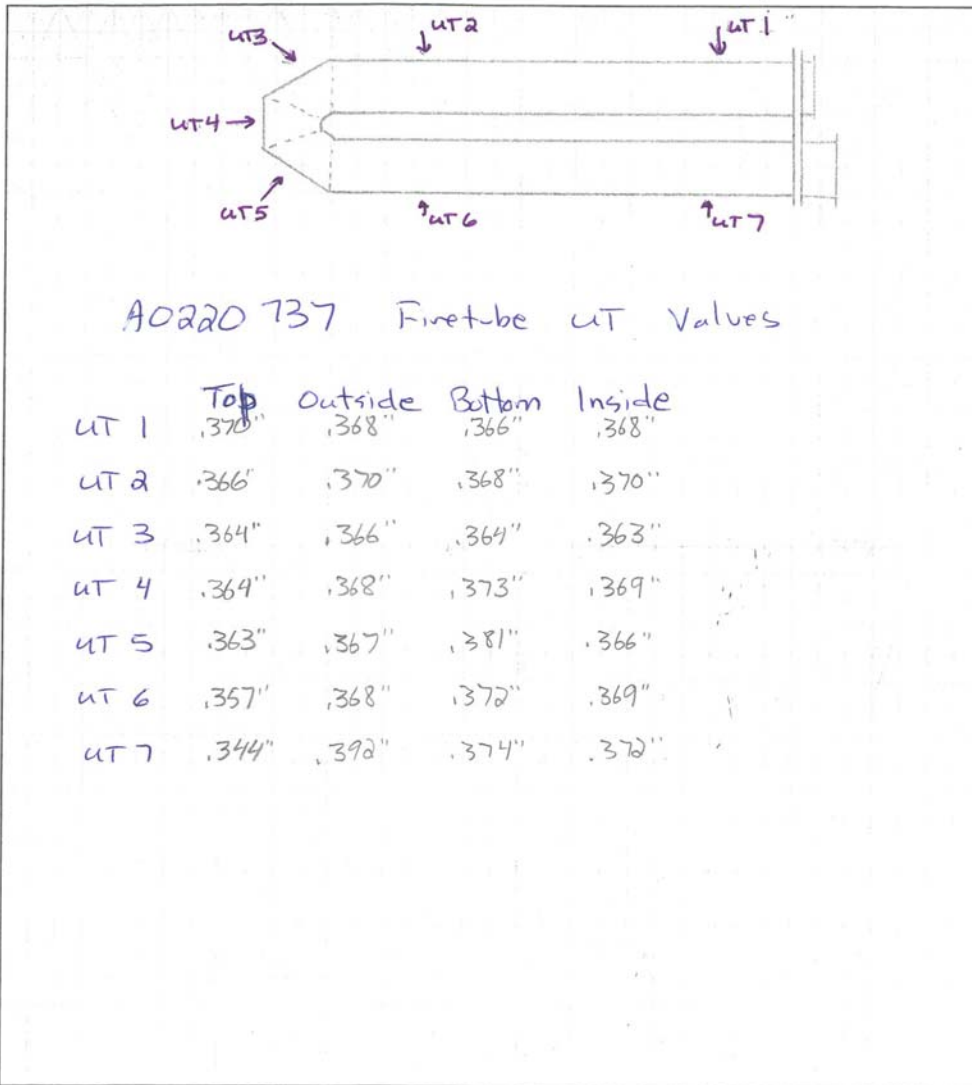 UT3 UT2 UT1
UT4
UT5 UT6 UT7
A0220737 Firetube UT Values
Top Outside Bottom Inside
UT 1 .370" .368" .366" .368"
UT 2 .366" .370" .368" .370"
UT 3 .364" .366" .364" .363"
UT 4 .364" .368" .373" .369"
UT 5 .363" .367" .381" .366"
UT 6 .357" .368" .372" .369"
UT 7 .344" .392" .374" .372"